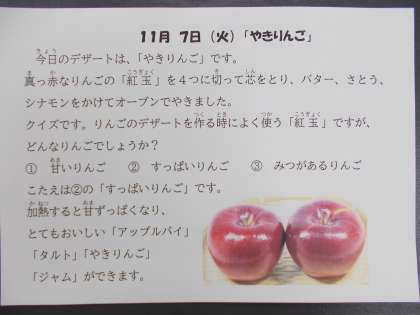 11月 7日（火）「やきりんご」
今日のデザートは、「やきりんご」です。
真っ赤なりんごの「紅玉」を４つに切って芯をとり、バター、さとう、
シナモンをかけてオーブンでやきました。
クイズです。りんごのデザートを作る時によく使う「紅玉」ですが、
どんなりんごでしょうか？
① 甘いりんご　② すっぱいりんご　③ みつがあるりんご
こたえは②の「すっぱいりんご」です。
加熱すると甘ずっぱくなり、
とてもおいしい「アップルパイ」
「タルト」「やきりんご」
「ジャム」ができます。